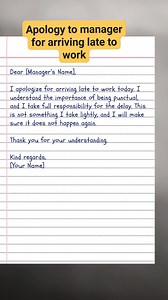 Apology to manager
for arriving late to
work
Dear [Manager's Name],
I apologize for arriving late to work today. I
understand the importance of being punctual,
and I take full responsibility for the delay. This
is not something I take lightly, and I will make
sure it does not happen again.
Thank you for your understanding.
Kind regards,
[Your Name]